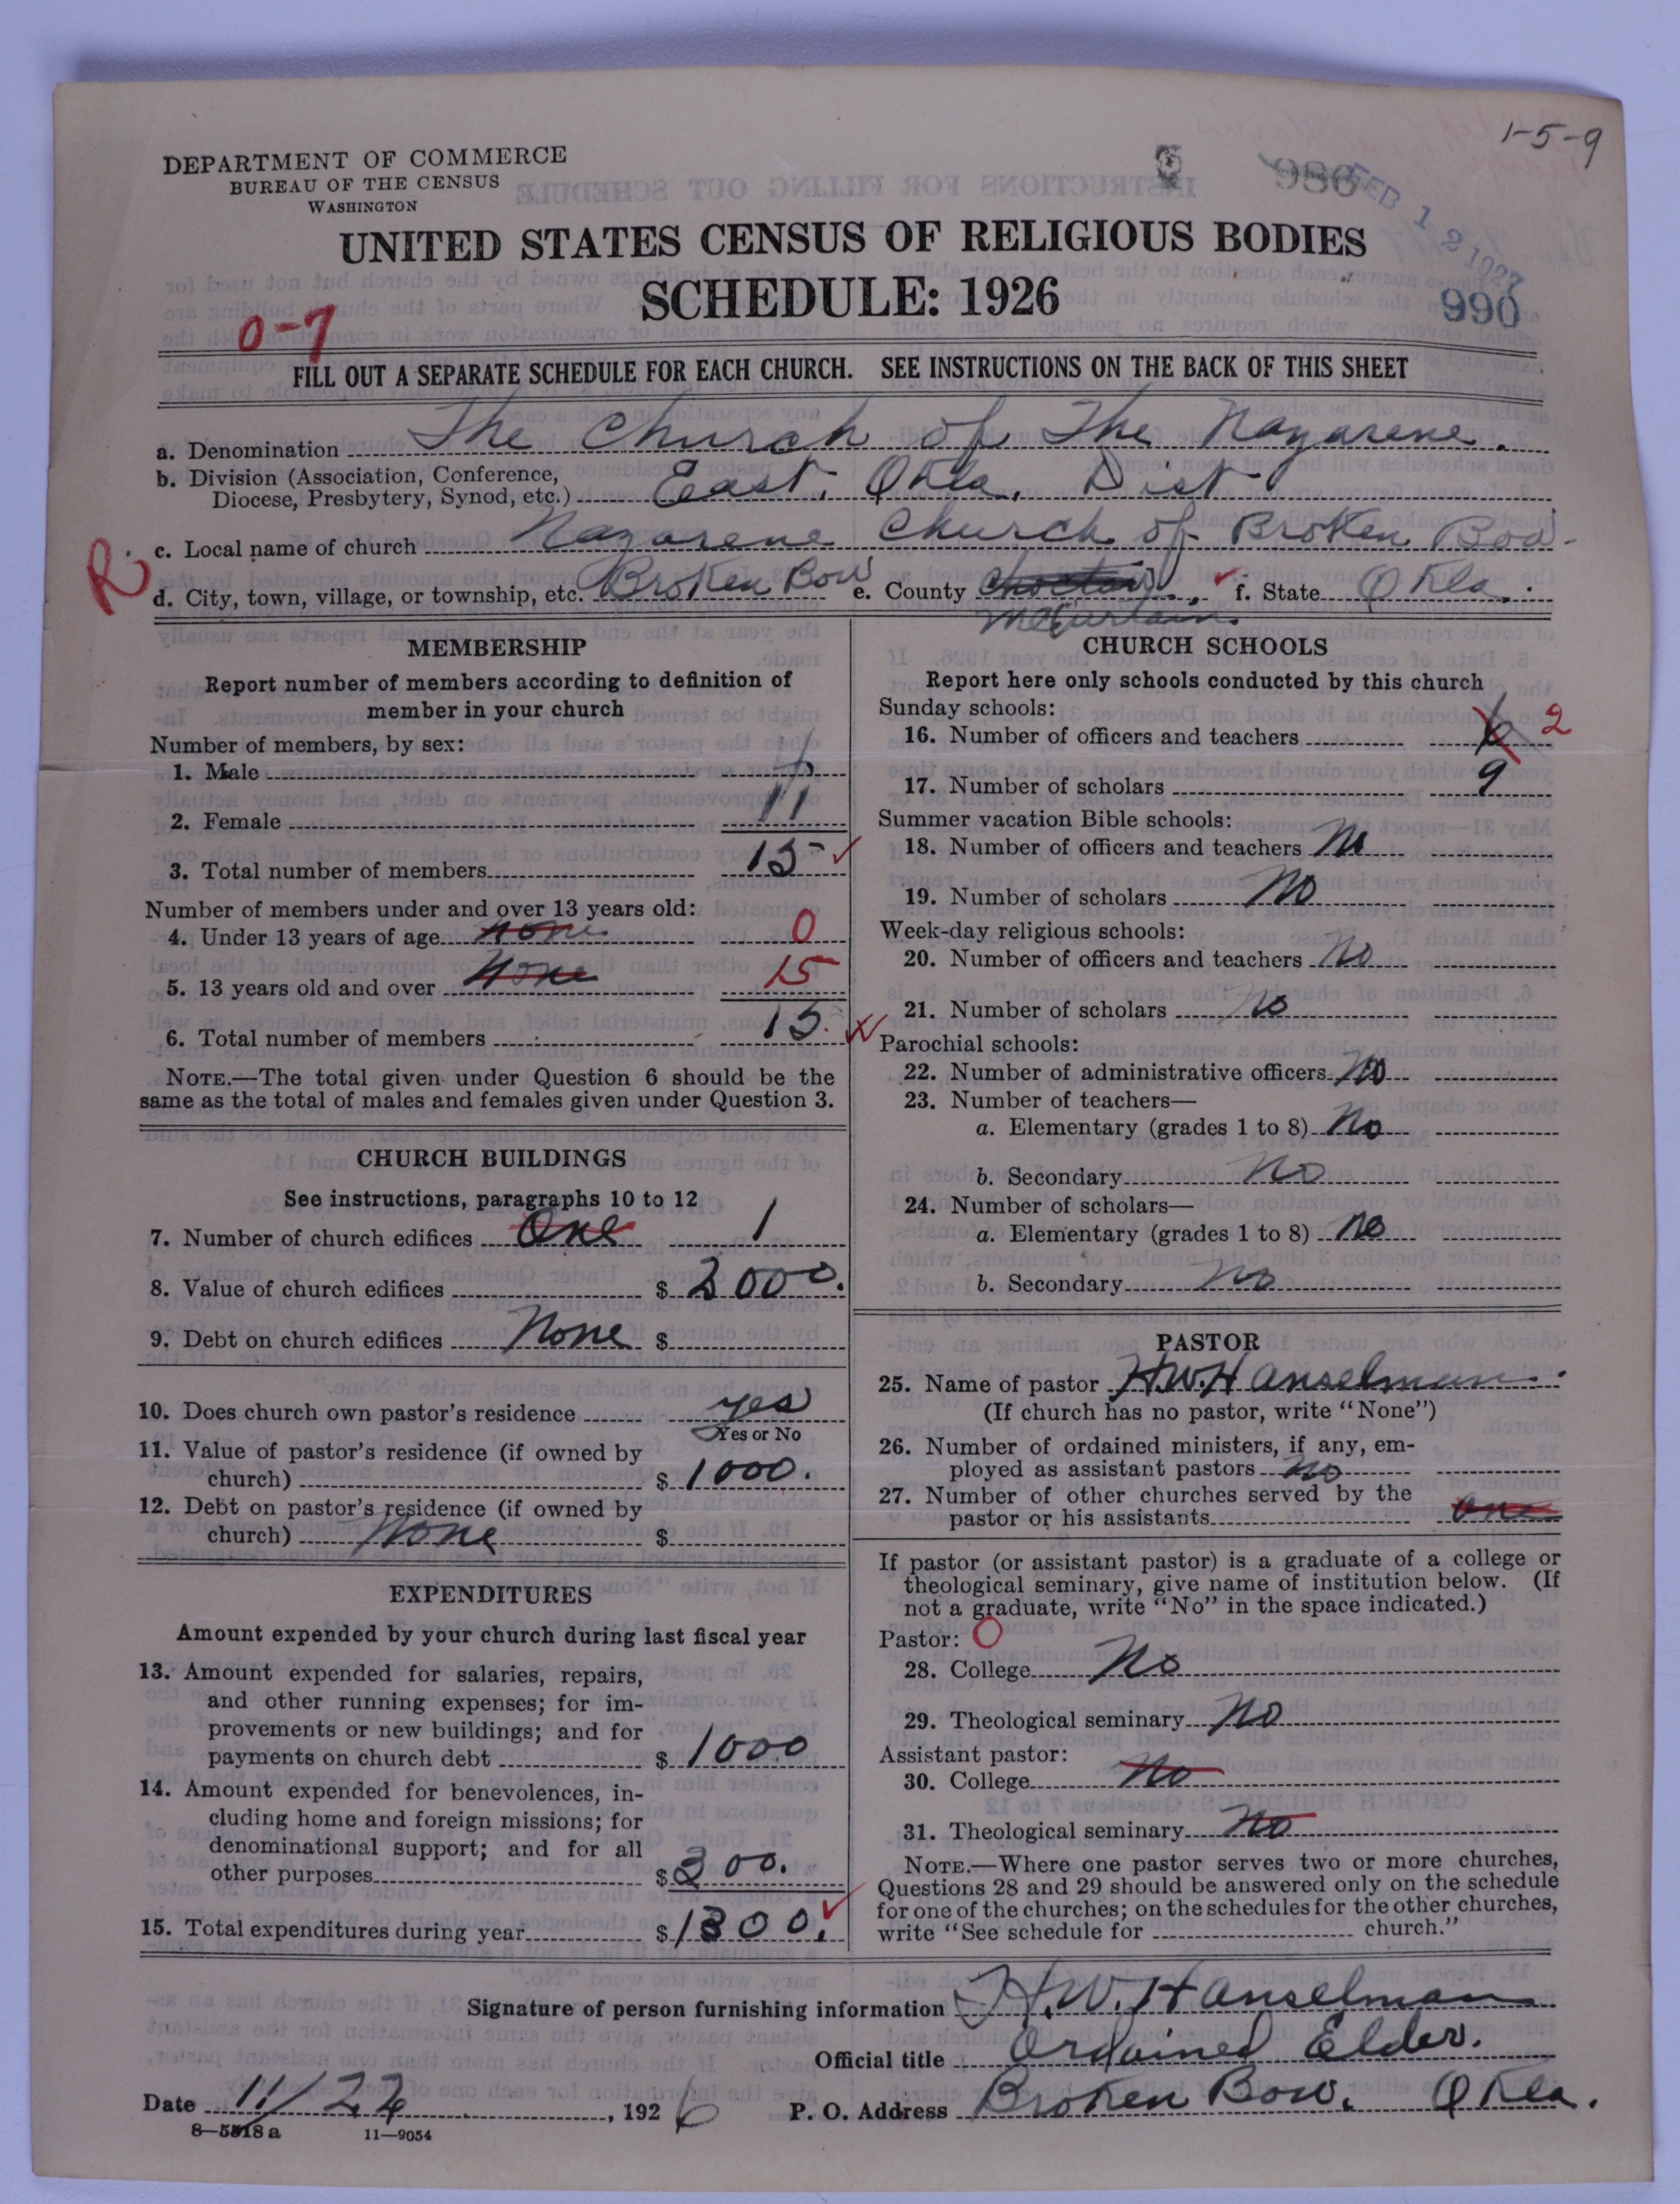 1-5-9
DEPARTMENT OF COMMERCE
BUREAU OF THE CENSUS
WASHINGTON
986
FEB 12 1927
UNITED STATES CENSUS OF RELIGIOUS BODIES
SCHEDULE: 1926
990
0-7
FILL OUT A SEPARATE SCHEDULE FOR EACH CHURCH. SEE INSTRUCTIONS ON THE BACK OF THIS SHEET
a. Denomination The Church of The Nazarene.
b. Division (Association, Conference,
Diocese, Presbytery, Synod, etc.) East. Okla. Dist
R. c. Local name of church Nazarene Church of Broken Bow.
d. City, town, village, or township, etc. Broken Bow e. County Choctaw. f. State Okla.
McCurtain.
MEMBERSHIP
Report number of members according to definition of
member in your church
Number of members, by sex:
1. Male 4
2. Female 11
3. Total number of members 15
Number of members under and over 13 years old:
4. Under 13 years of age none 0
5. 13 years old and over None 15
6. Total number of members 15.
NOTE.—The total given under Question 6 should be the
same as the total of males and females given under Question 3.
CHURCH BUILDINGS
See instructions, paragraphs 10 to 12
7. Number of church edifices One 1
8. Value of church edifices $ 2000.
9. Debt on church edifices None $
10. Does church own pastor's residence yes
Yes or No
11. Value of pastor's residence (if owned by
church) $ 1000.
12. Debt on pastor's residence (if owned by
church) None $
EXPENDITURES
Amount expended by your church during last fiscal year
13. Amount expended for salaries, repairs,
and other running expenses; for im-
provements or new buildings; and for
payments on church debt $ 1000
14. Amount expended for benevolences, in-
cluding home and foreign missions; for
denominational support; and for all
other purposes $ 300.
15. Total expenditures during year $ 1300.
CHURCH SCHOOLS
Report here only schools conducted by this church
Sunday schools:
16. Number of officers and teachers 2
17. Number of scholars 9
Summer vacation Bible schools:
18. Number of officers and teachers No
19. Number of scholars No
Week-day religious schools:
20. Number of officers and teachers No
21. Number of scholars No
Parochial schools:
22. Number of administrative officers No
23. Number of teachers—
a. Elementary (grades 1 to 8) No
b. Secondary No
24. Number of scholars—
a. Elementary (grades 1 to 8) No
b. Secondary No
PASTOR
25. Name of pastor H.W. Hanselman.
(If church has no pastor, write "None")
26. Number of ordained ministers, if any, em-
ployed as assistant pastors No
27. Number of other churches served by the
pastor or his assistants one
If pastor (or assistant pastor) is a graduate of a college or
theological seminary, give name of institution below. (If
not a graduate, write "No" in the space indicated.)
Pastor: O
28. College No
29. Theological seminary No
Assistant pastor:
30. College No
31. Theological seminary No
NOTE.—Where one pastor serves two or more churches,
Questions 28 and 29 should be answered only on the schedule
for one of the churches; on the schedules for the other churches,
write "See schedule for church."
Signature of person furnishing information H.W. Hanselman
Official title Ordained Elder.
Date 11/22, 1926 P. O. Address Broken Bow. Okla.
8—5518 a 11—9054